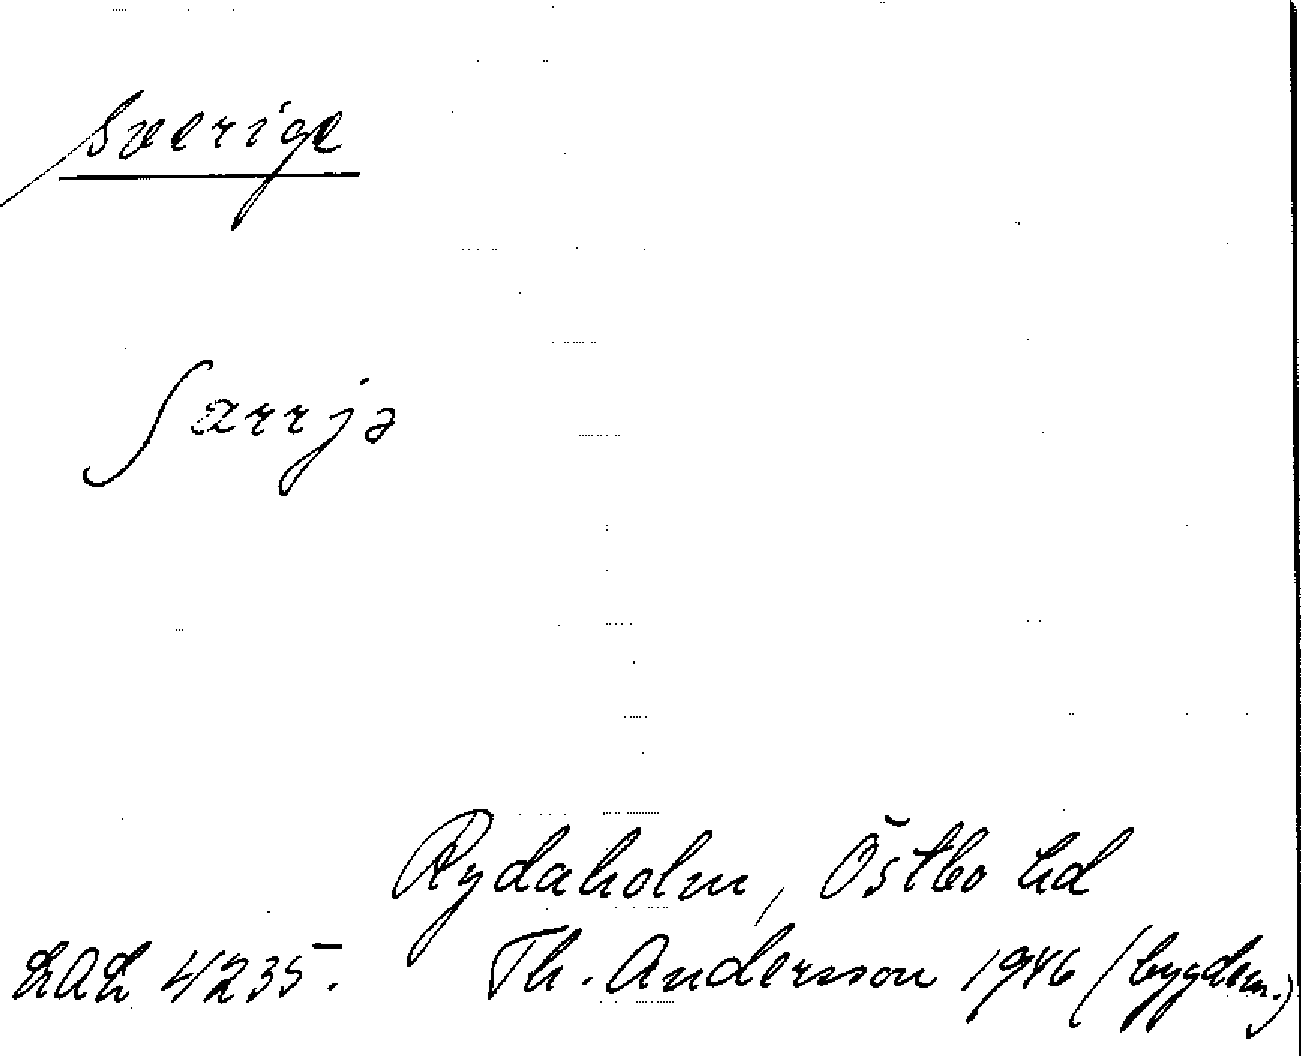 Sverige
Särrja
Rydaholm, Östbo hd
LAL 4235.
Th. Andersson 1946 (bygdem.)